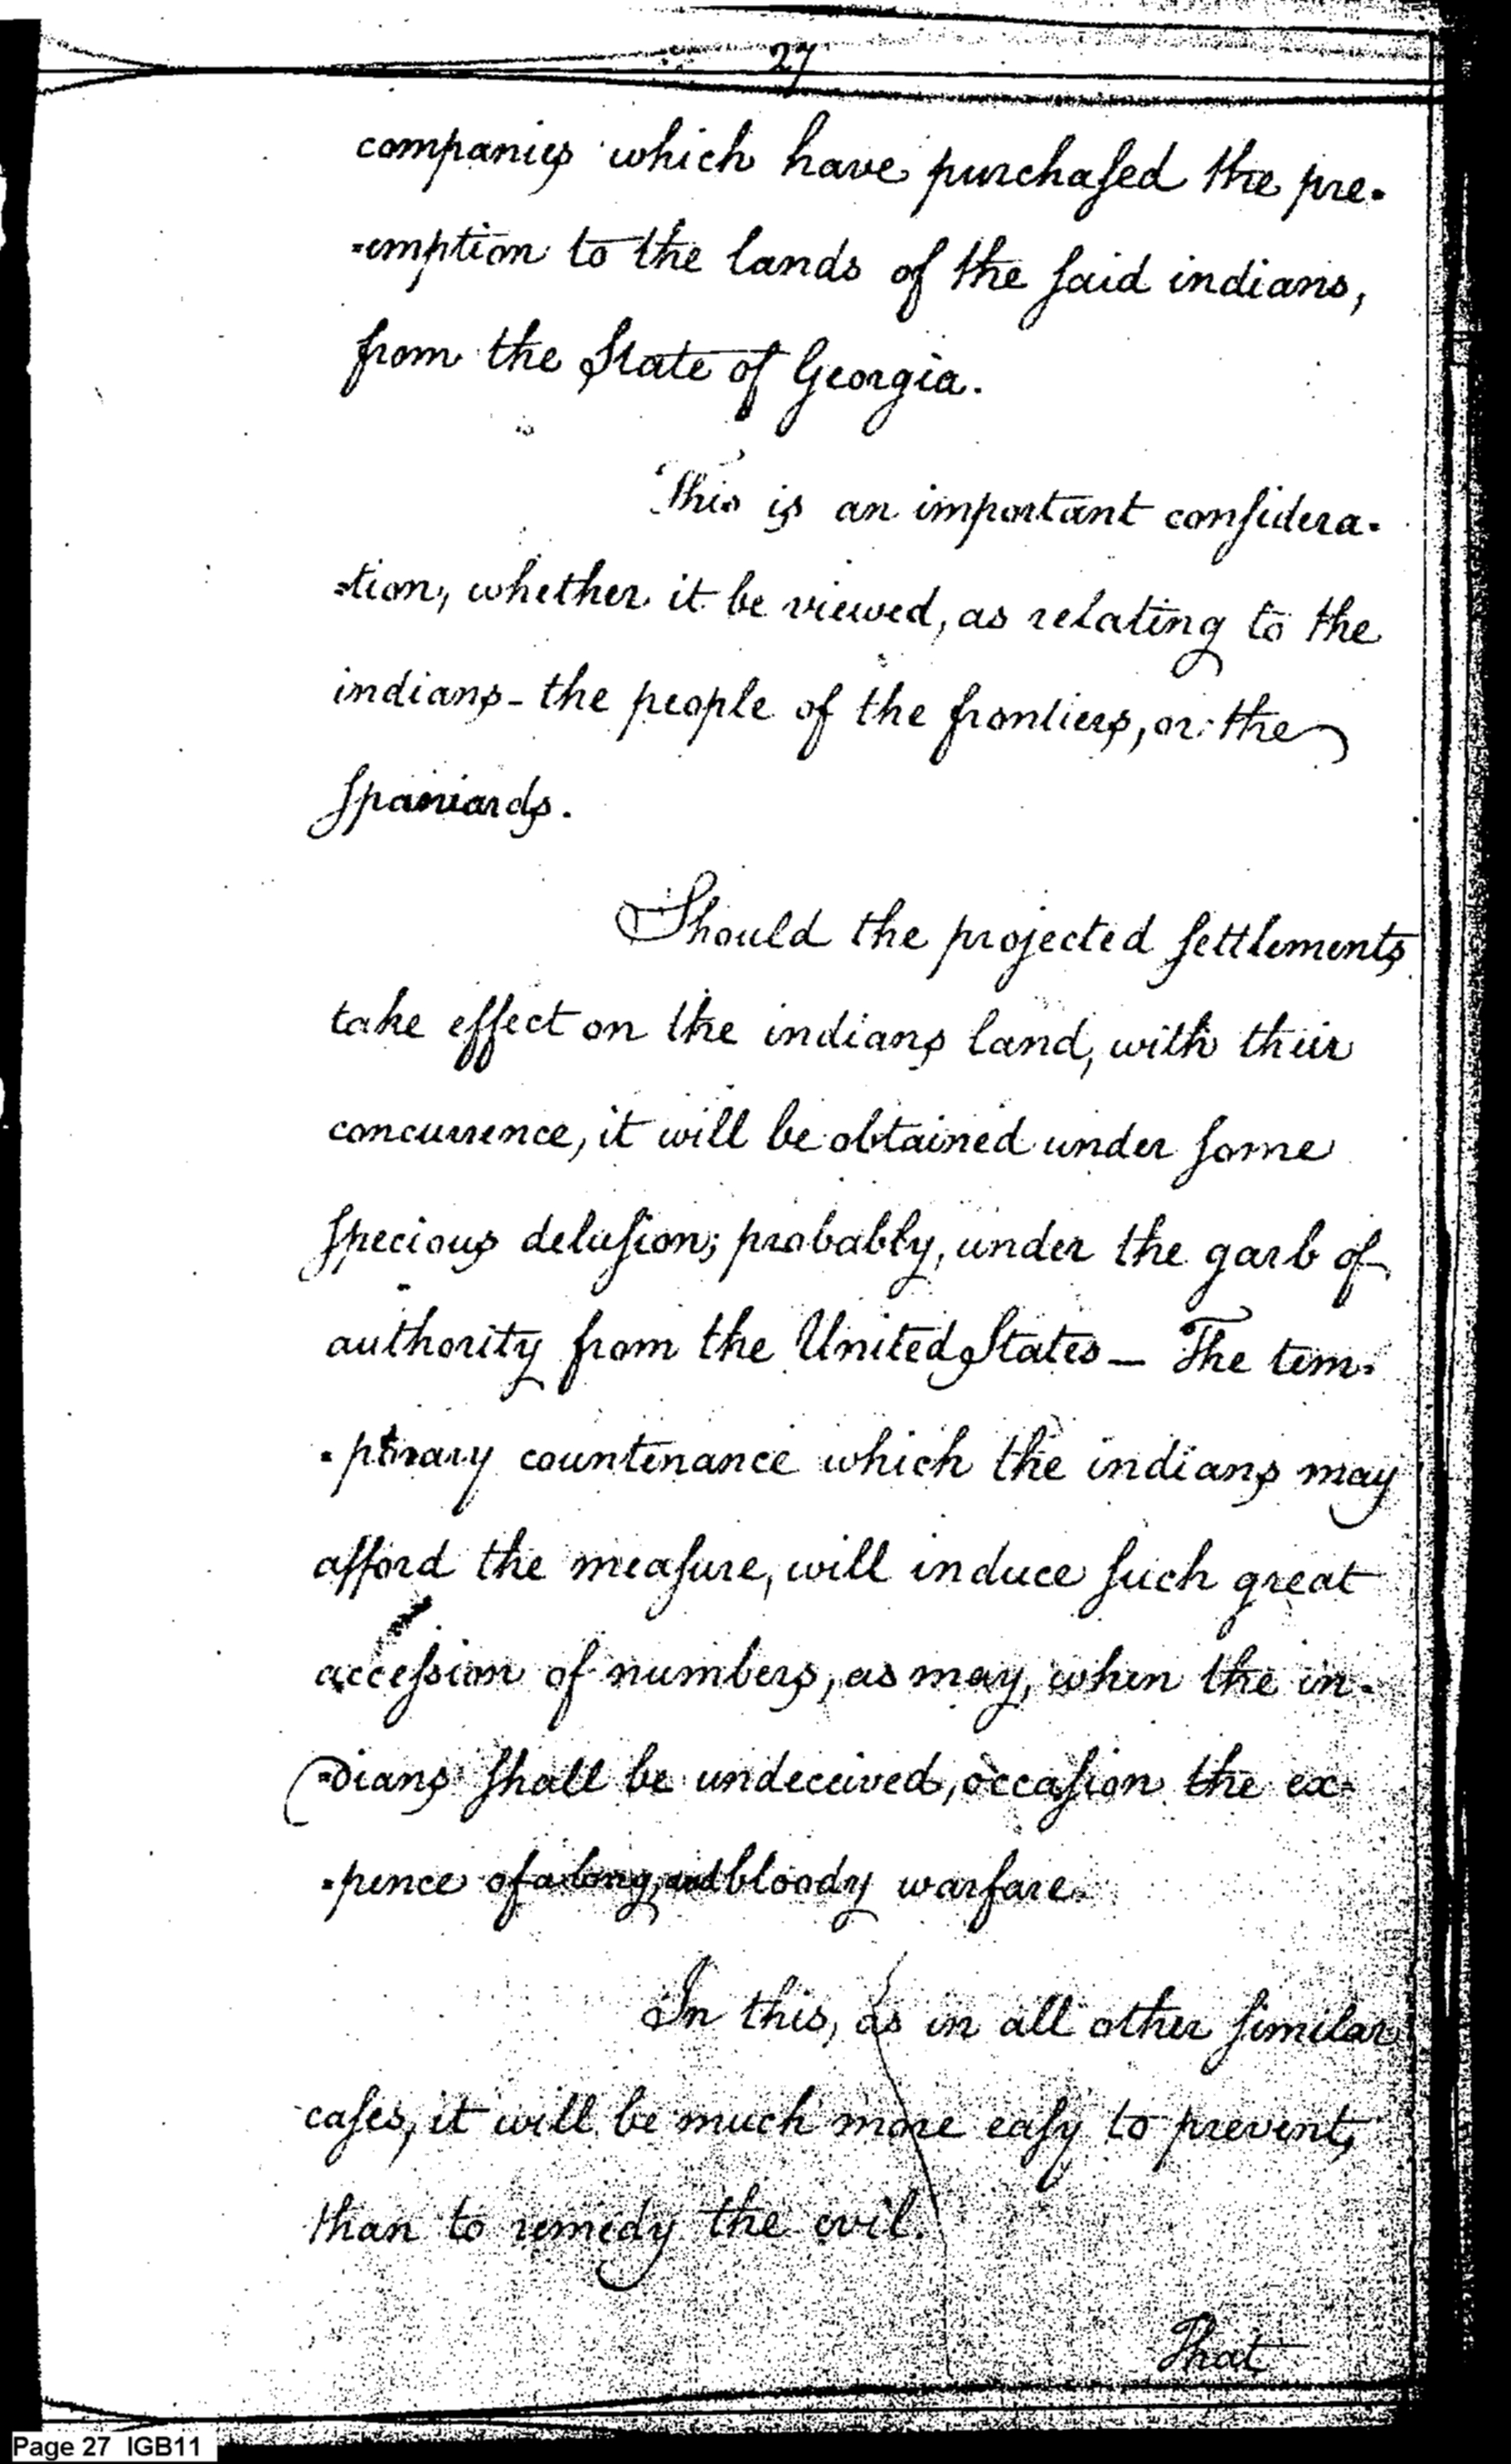 27
companies which have purchased the pre-
-emption to the lands of the said indians,
from the State of Georgia.
This is an important considera-
-tion, whether it be viewed, as relating to the
indians - the people of the frontiers, or the
Spaniards.
Should the projected settlements
take effect on the indians land, with their
concurrence, it will be obtained under some
specious delusion; probably, under the garb of
authority from the United States — The tem-
-porary countenance which the indians may
afford the measure, will induce such great
accession of numbers, as may, when the in-
-dians shall be undeceived, occasion the ex-
-pence of a long, and bloody warfare.
In this, as in all other similar
cases, it will be much more easy to prevent,
than to remedy the evil.
That
Page 27 IGB11